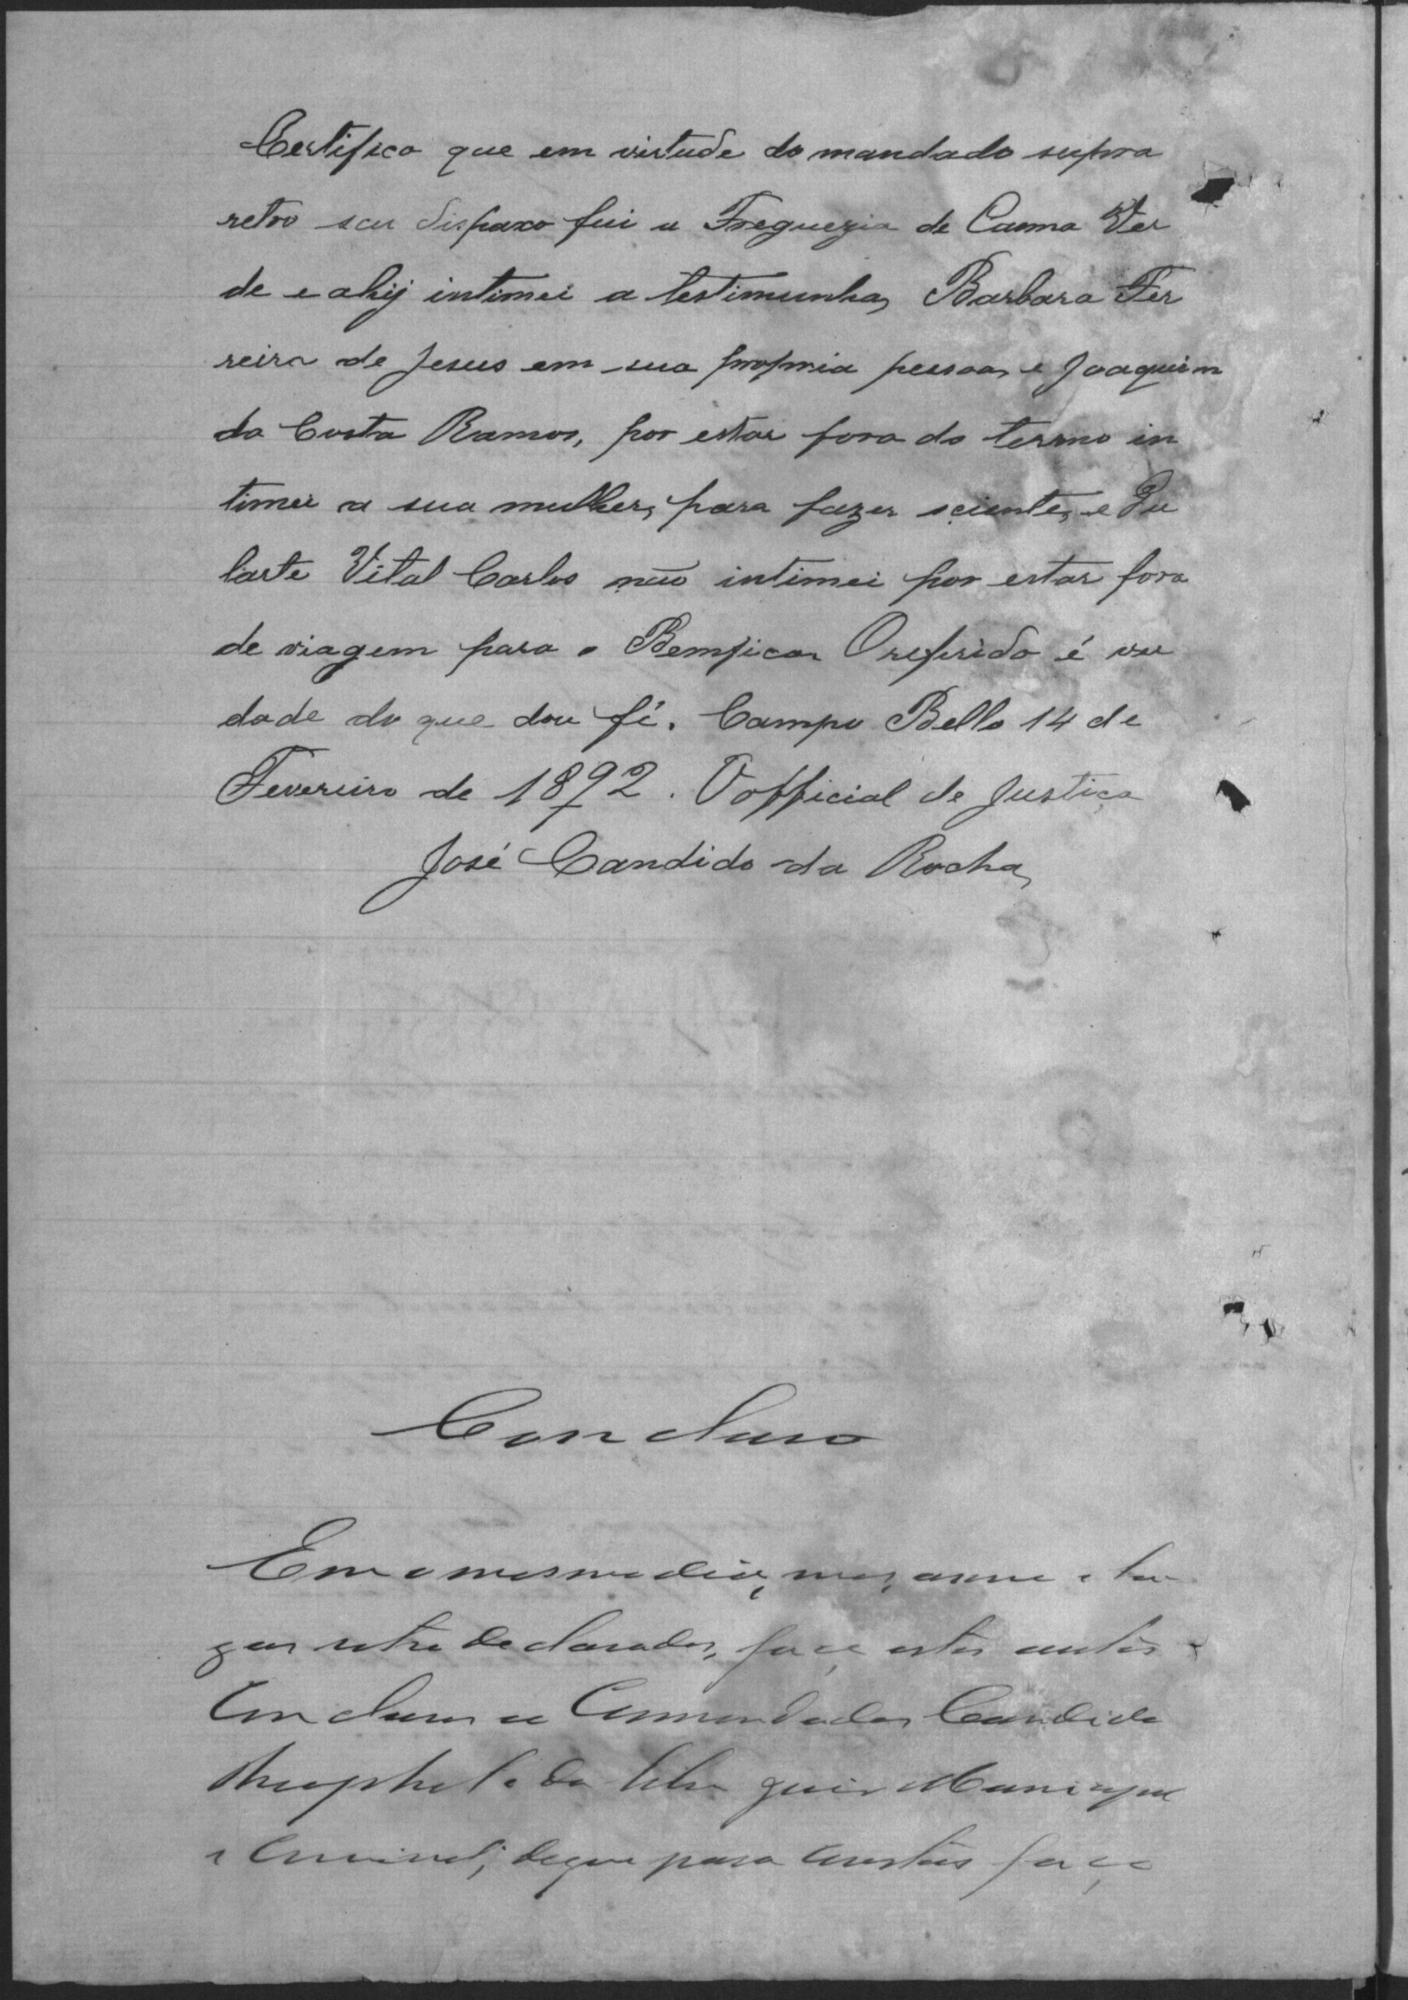 Certifico que em virtude do mandado supra
retro seu dispaxo fui a Freguezia de Canna Ver
de e ahij intimei a testimunha, Barbara Fer
reira de Jesus em sua propria pessoa, e Joaquim
da Costa Ramos, por estar fora do termo in
timei a sua mulher, para fazer sciente, e Du
larte Vital Carlos não intimei por estar fora
de viagem para o Bemfica. O referido é ver
dade do que dou fé. Campo Bello 14 de
Fevereiro de 1892. O official de Justiça
José Candido da Rocha,
Concluso
Em o mesmo dia, mez, anno e lu
gar retro declarados, faço estes autos
Conclusos ao Commendador Candido
Theophilo da Silva Juiz Municipal
e Criminal; do que para constar faço